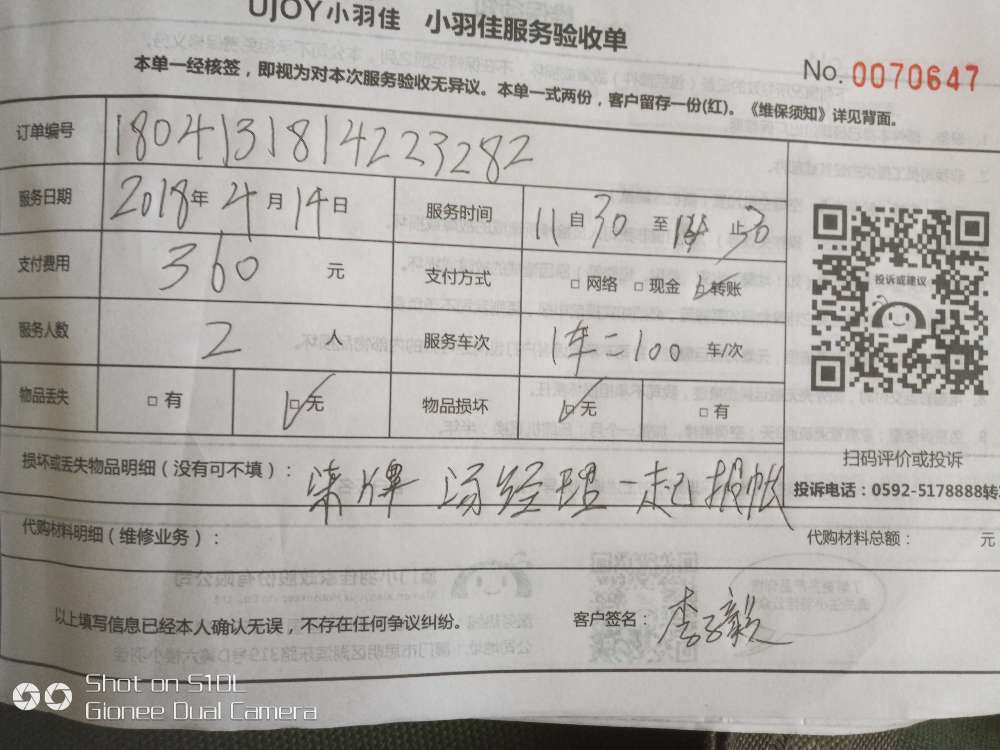 UJOY小羽佳 小羽佳服务验收单
本单一经核签，即视为对本次服务验收无异议。本单一式两份，客户留存一份(红)。《维保须知》详见背面。
No. 0070647
订单编号 1804131814223282
服务日期 2018年4月14日 服务时间 11自30至 止
支付费用 360元 支付方式 □网络 □现金 □转账
服务人数 2人 服务车次 1车=100 车/次
物品丢失 □有 □无 物品损坏 □无 □有
投诉或建议
扫码评价或投诉
投诉电话：0592-5178888转
损坏或丢失物品明细（没有可不填）： 牌 汤经理一起报帐
代购材料明细（维修业务）： 代购材料总额： 元
以上填写信息已经本人确认无误，不存在任何争议纠纷。 客户签名： 李毅
Shot on S10L
Gionee Dual Camera